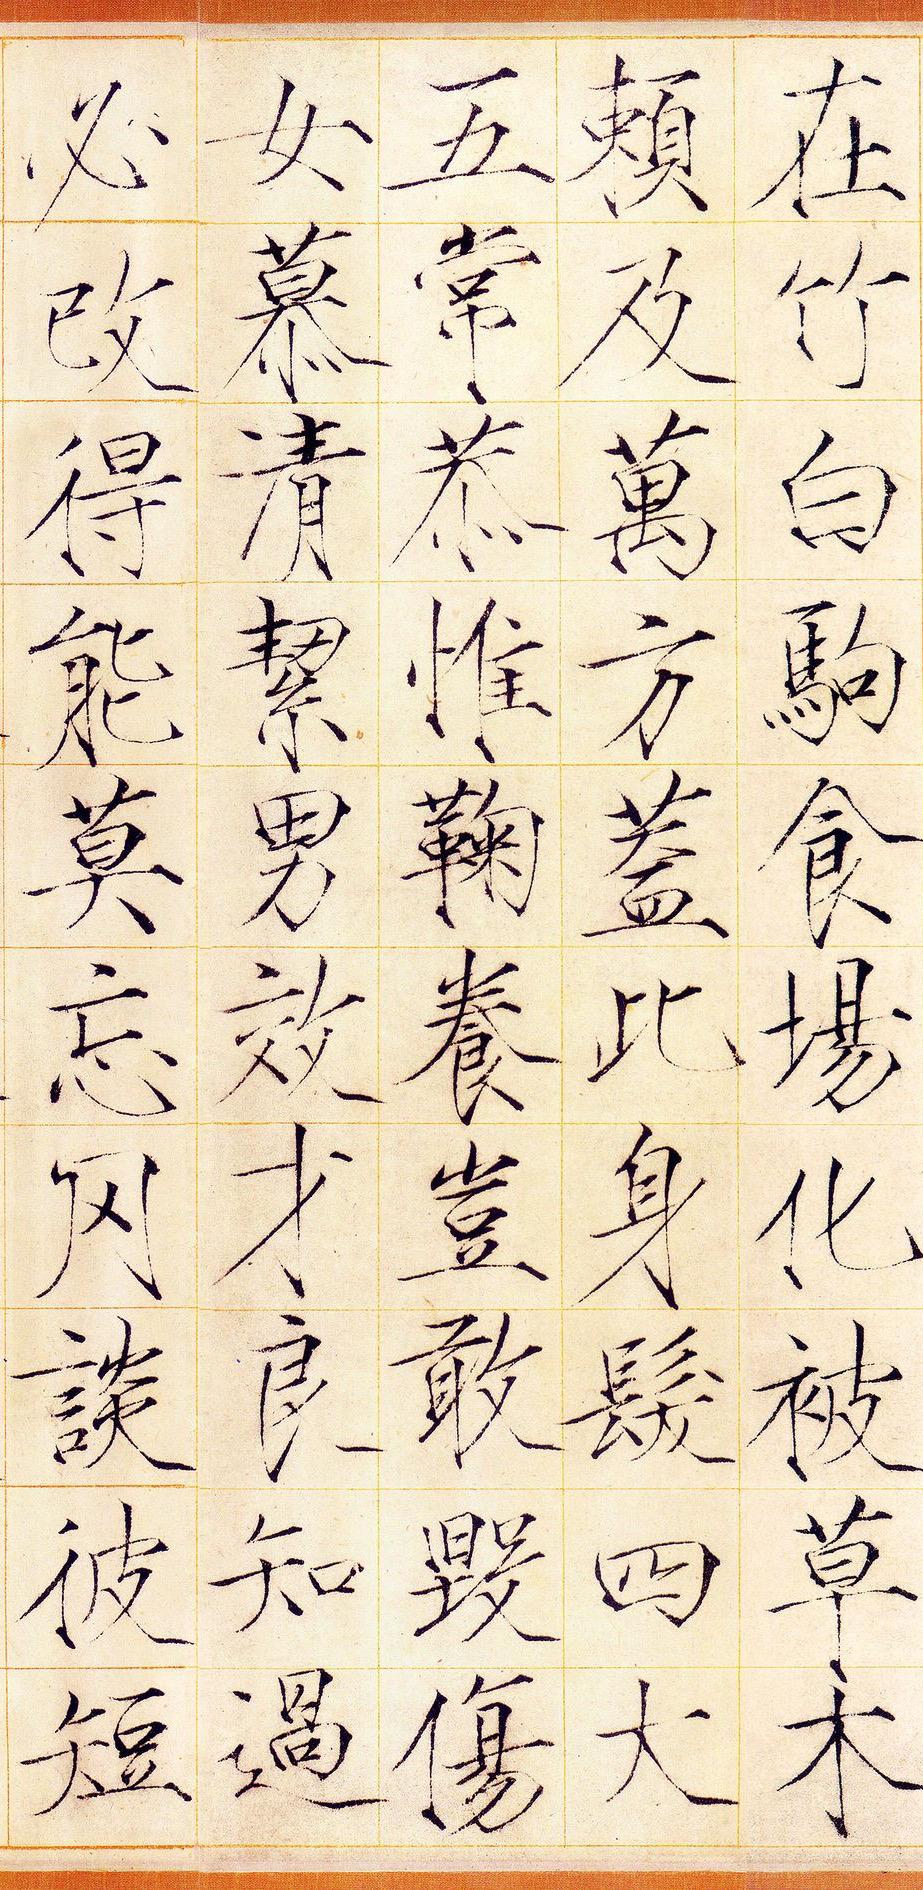 在竹白駒食場化被草木
頼及萬方蓋此身髮四大
五常恭惟鞠養豈敢毀傷
女慕清絜男效才良知過
必改得能莫忘罔談彼短